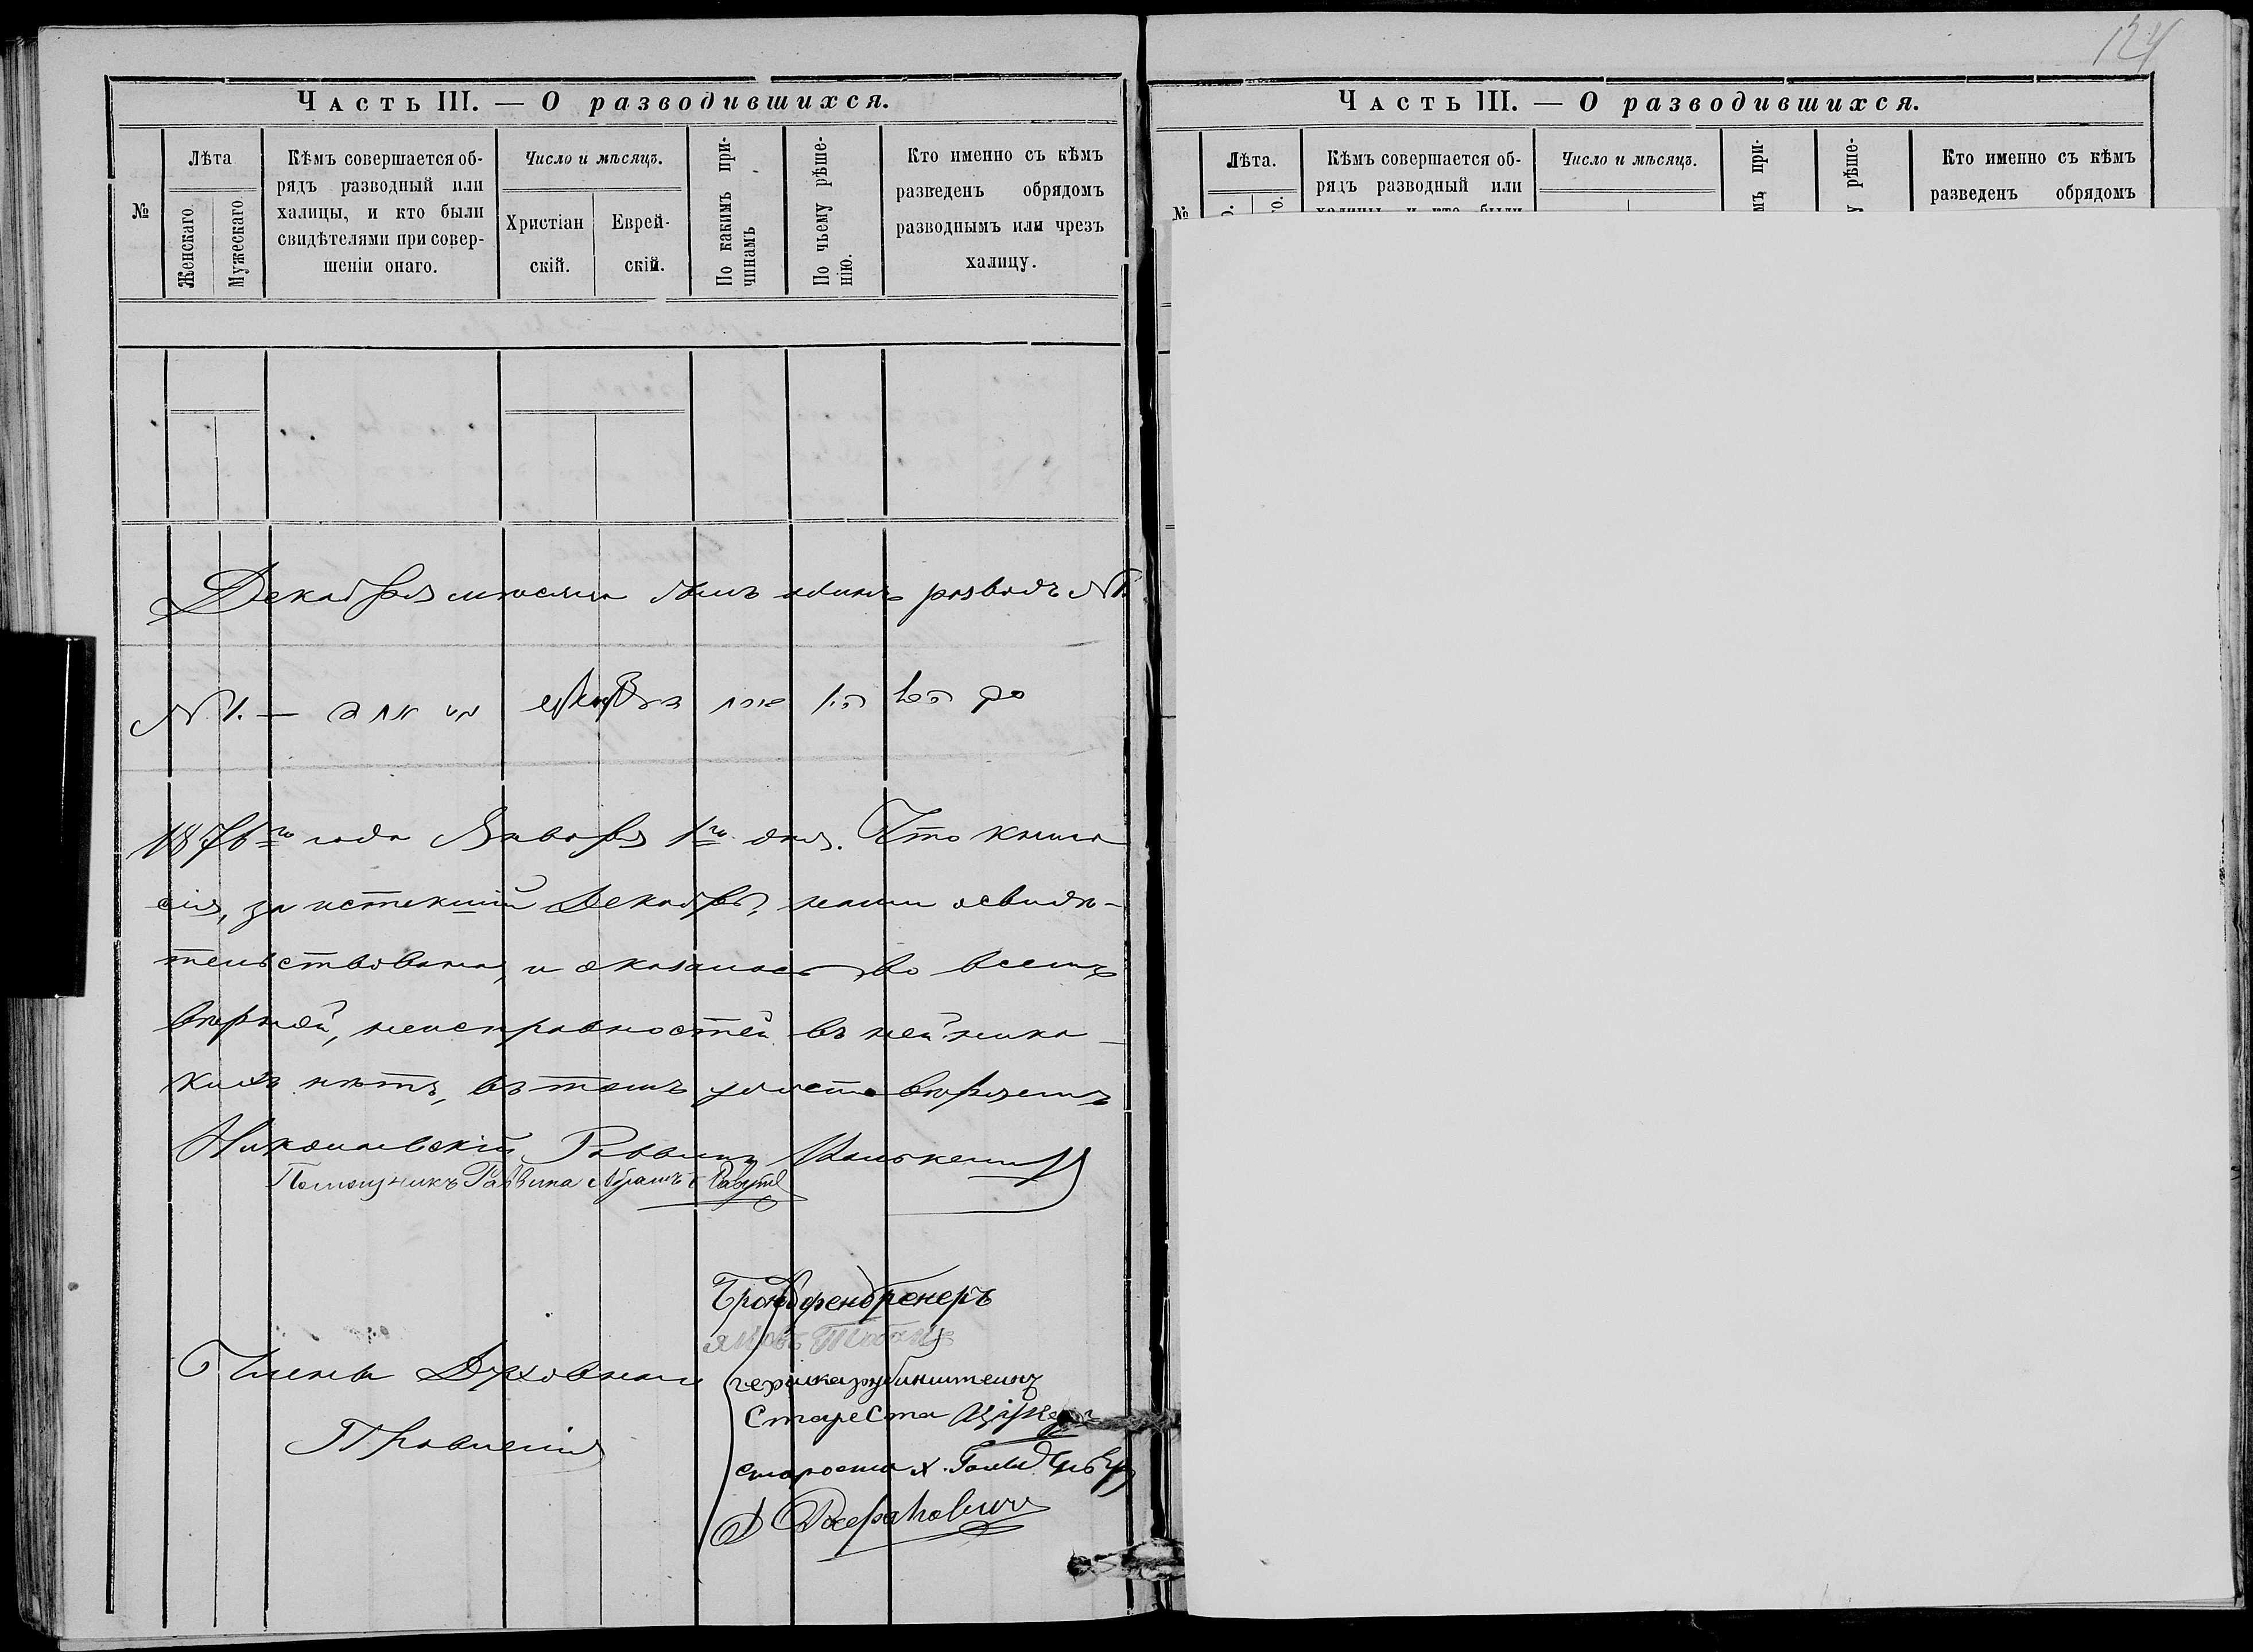 124
Часть III. — О разводившихся.
№
Лѣта
Женскаго
Мужескаго.
Кѣмъ совершается об-
рядъ разводный или
халицы, и кто были
свидѣтелями при совер-
шеніи онаго.
Число и мѣсяцъ.
Христіан
скій.
Еврей-
скій.
По какимъ при-
чинамъ
По чьему рѣше-
нію.
Кто именно съ кѣмъ
разведенъ обрядомъ
разводнымъ или чрезъ
халицу.
Декабря мѣсяца былъ одинъ разводъ №1.
№ 1. —
1876го года Января 1го дня. Что книга
сія, за истекшій Декабрь, нами освидѣ-
тельствована, и оказалась во всемъ
вѣрной, неисправностей въ ней ника-
кихъ нѣтъ, въ томъ удостовѣряемъ
Николаевскій Раввинъ
Помощникъ Раввина Абрамъ
Бронфенбренеръ
Яковъ
Члены Духовнаго
гершка рубинштеинъ
Стареста
Правленія
староста Х.
Часть III. — О разводившихся.
№
Лѣта.
Кѣмъ совершается об-
рядъ разводный или
халицы, и кто были
Число и мѣсяцъ.
мъ при-
у рѣше-
Кто именно съ кѣмъ
разведенъ обрядомъ